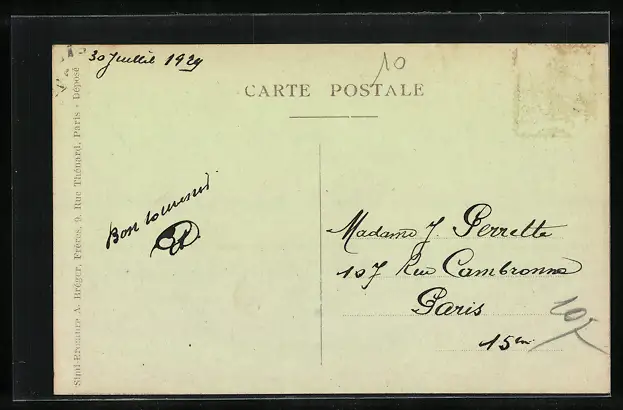 30 Juillet 1929
10
CARTE POSTALE
Bon souvenir
Madame J. Perrette
107 Rue Cambronne
Paris
15em
Simi-Bromure A. Bréger, Frères, 9, Rue Thénard, Paris - Déposé